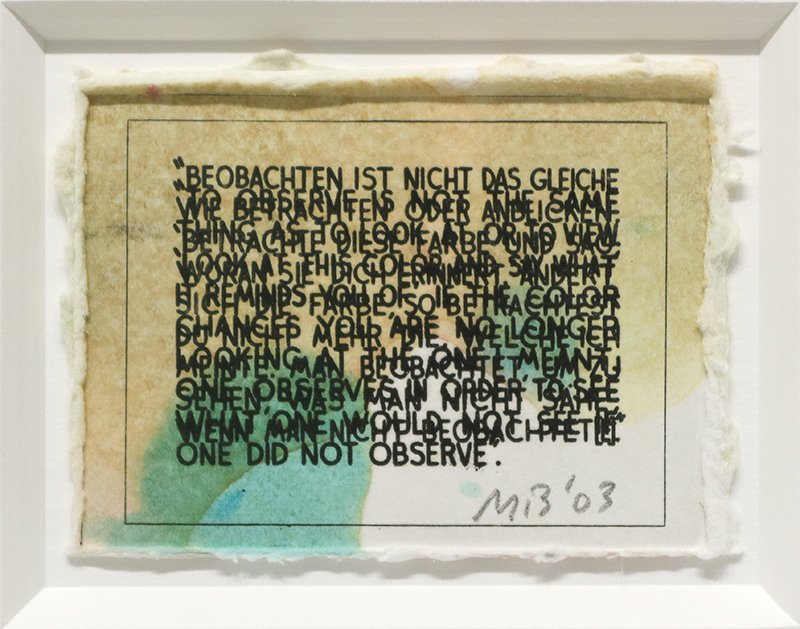 "BEOBACHTEN IST NICHT DAS GLEICHE
"TO OBSERVE IS NOT THE SAME
WIE BETRACHTEN ODER ANBLICKEN.
THING AS TO LOOK AT OR TO VIEW.
'BETRACHTE DIESE FARBE UND SAG,
'LOOK AT THIS COLOR AND SAY WHAT
WORAN SIE DICH ERINNERT.' ÄNDERT
IT REMINDS YOU OF.' IF THE COLOR
SICH DIE FARBE, SO BETRACHTEST
CHANGES YOU ARE NO LONGER
DU NICHT MEHR DIE, WELCHE ICH
LOOKING AT THE ONE I MEANT.
MEINTE. MAN BEOBACHTET, UM ZU
ONE OBSERVES IN ORDER TO SEE
SEHEN, WAS MAN NICHT SÄHE,
WHAT ONE WOULD NOT SEE IF
WENN MAN NICHT BEOBACHTET[E]."
ONE DID NOT OBSERVE.
MiB '03